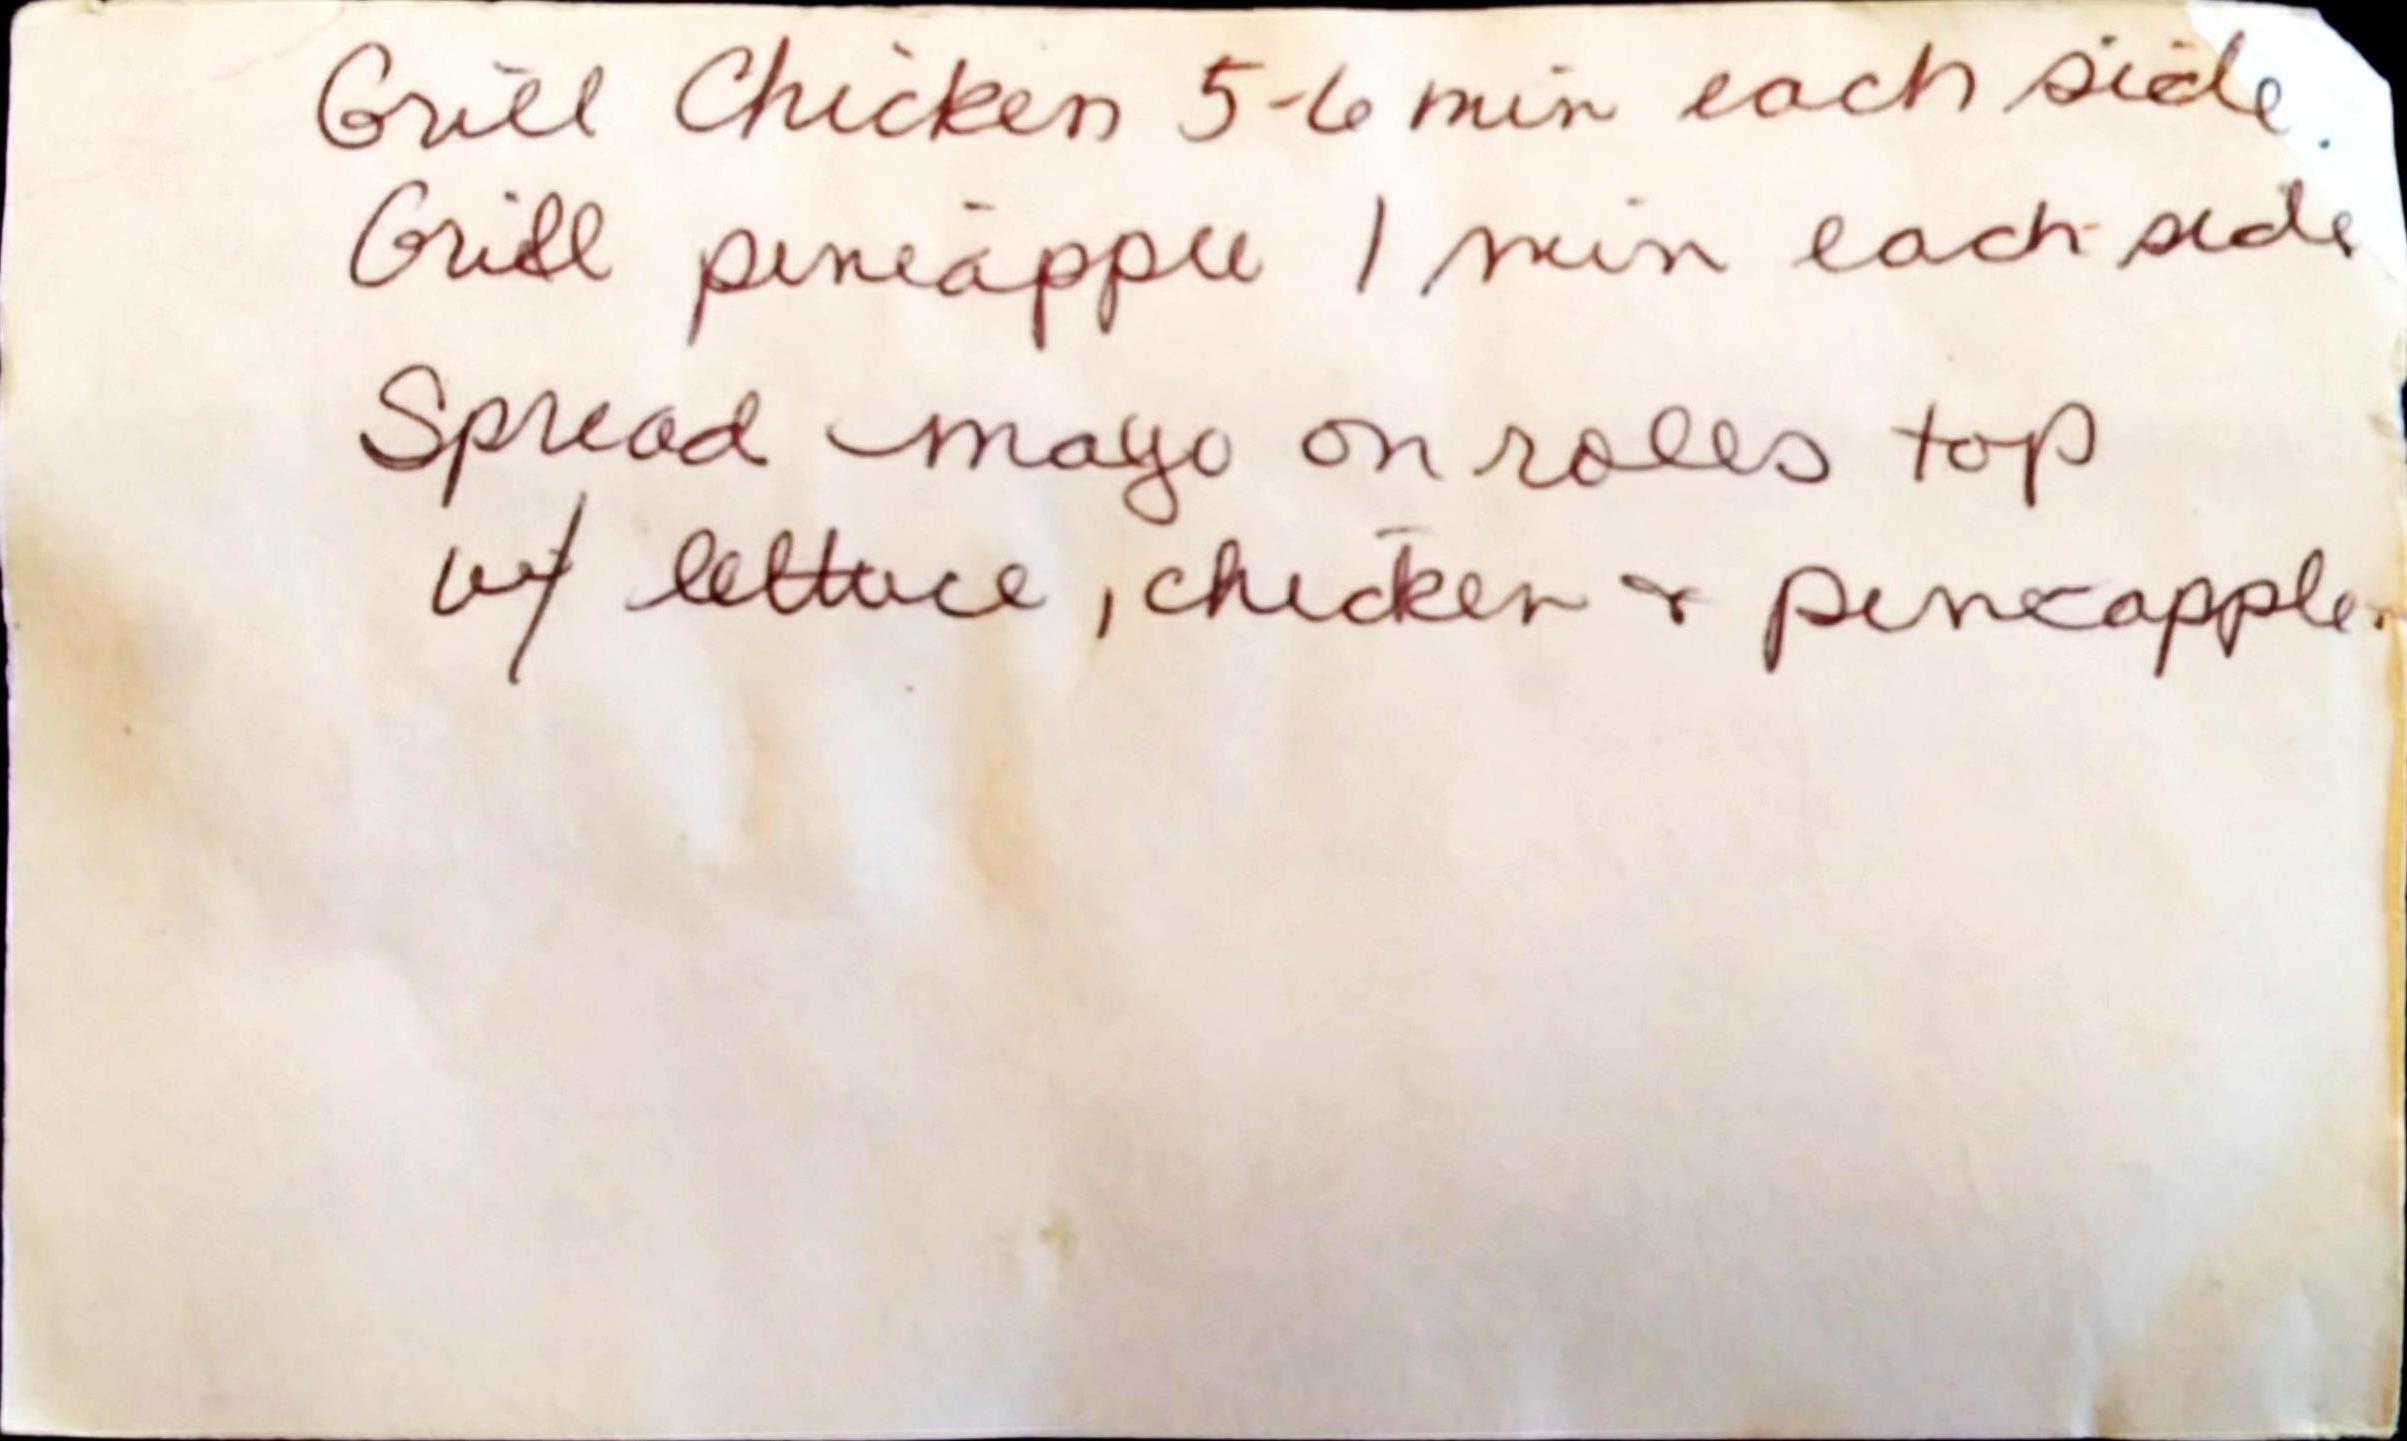 Grill Chicken 5-6 min each side.
Grill pineapple 1 min each side
Spread mayo on rolls top
w/ lettuce, chicken & pineapple.